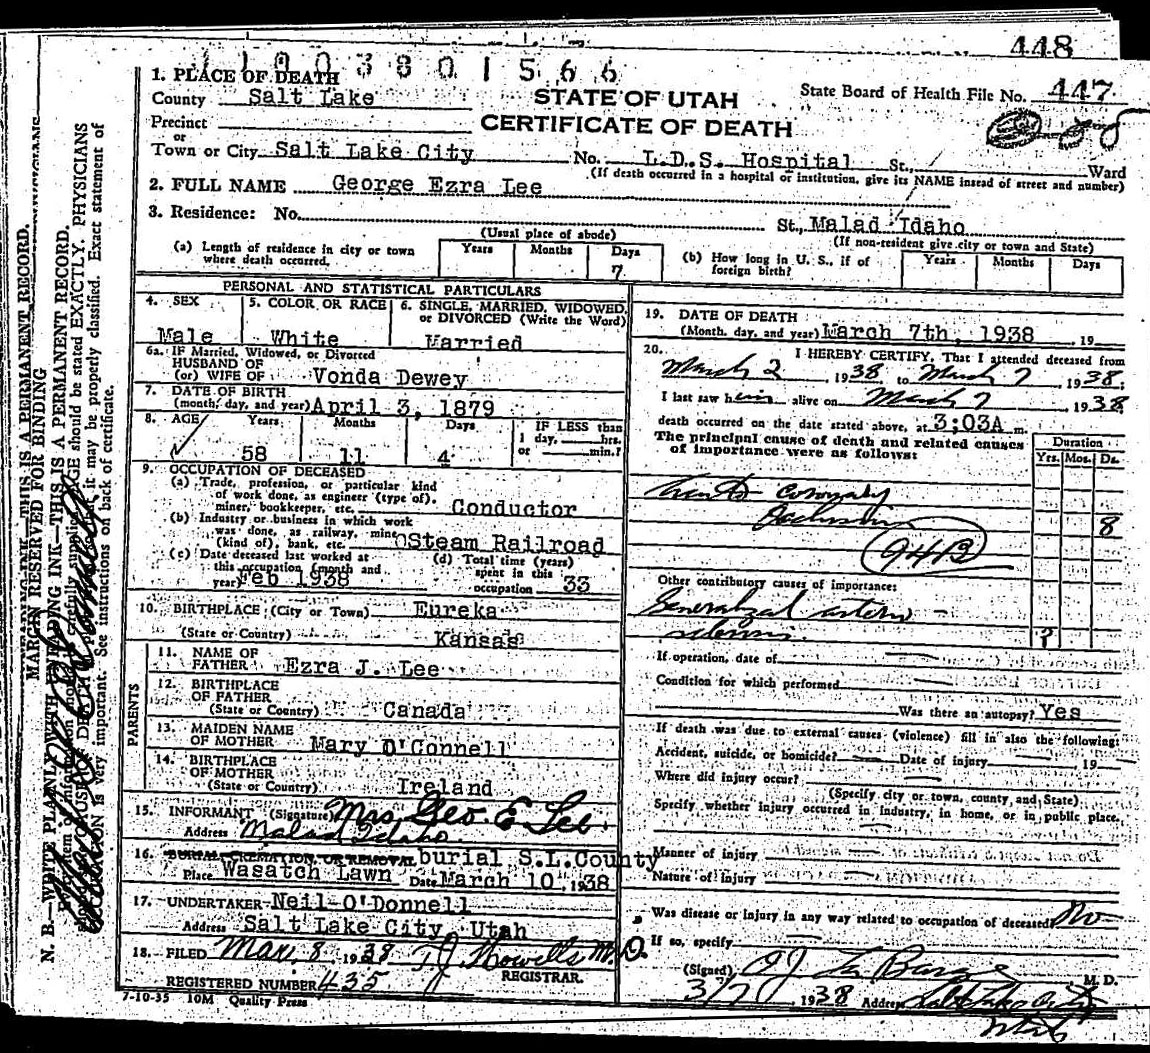 448
1 1 0 0 3 8 0 1 5 6 6
1. PLACE OF DEATH
County Salt Lake
STATE OF UTAH
State Board of Health File No. 447
Precinct
CERTIFICATE OF DEATH
or
Town or City Salt Lake City No. L.D.S. Hospital St., Ward
(If death occurred in a hospital or institution, give its NAME instead of street and number)
2. FULL NAME George Ezra Lee
3. Residence: No. St., Malad Idaho
(Usual place of abode) (If non-resident give city or town and State)
(a) Length of residence in city or town where death occurred. Years Months Days 7
(b) How long in U. S., if of foreign birth? Years Months Days
PERSONAL AND STATISTICAL PARTICULARS
4. SEX 5. COLOR OR RACE 6. SINGLE, MARRIED, WIDOWED, or DIVORCED (Write the Word)
Male White Married
6a. IF Married, Widowed, or Divorced
HUSBAND OF
(or) WIFE OF Vonda Dewey
7. DATE OF BIRTH
(month, day, and year) April 3, 1879
8. AGE Years Months Days IF LESS than
1 day, hrs.
or min.?
58 11 4
9. OCCUPATION OF DECEASED
(a) Trade, profession, or particular kind
of work done, as engineer (type of),
miner, bookkeeper, etc. Conductor
(b) Industry or business in which work
was done, as railway, mine
(kind of), bank, etc. Steam Railroad
(c) Date deceased last worked at
this occupation (month and
year) Feb 1938
(d) Total time (years)
spent in this
occupation 33
10. BIRTHPLACE (City or Town) Eureka
(State or Country) Kansas
PARENTS
11. NAME OF
FATHER Ezra J. Lee
12. BIRTHPLACE
OF FATHER
(State or Country) Canada
13. MAIDEN NAME
OF MOTHER Mary O'Connell
14. BIRTHPLACE
OF MOTHER
(State or Country) Ireland
15. INFORMANT (Signature) Mrs Geo E Lee
Address Malad Idaho.
16. BURIAL, CREMATION, OR REMOVAL burial S.L.County
Place Wasatch Lawn Date March 10, 1938
17. UNDERTAKER Neil O'Donnell
Address Salt Lake City, Utah
18. FILED Mar. 8 1938 T J Howells M.D.
REGISTRAR.
REGISTERED NUMBER 435
7-10-35 10M Quality Press
19. DATE OF DEATH
(Month, day, and year) March 7th, 1938 19
20. I HEREBY CERTIFY, That I attended deceased from
March 2, 1938 to March 7, 1938;
I last saw him alive on March 7 1938,
death occurred on the date stated above, at 3:03A m.
The principal cause of death and related causes
of importance were as follows:
Duration
Yrs. Mos. Ds.
Acute coronary
occlusion 8
94B
Other contributory causes of importance:
Generalized arterio-
sclerosis. ?
If operation, date of
Condition for which performed
Was there an autopsy? Yes
If death was due to external causes (violence) fill in also the following:
Accident, suicide, or homicide? Date of injury 19
Where did injury occur?
(Specify city or town, county, and State)
Specify whether injury occurred in industry, in home, or in public place.
Manner of injury
Nature of injury
Was disease or injury in any way related to occupation of deceased? No
If so, specify
(Signed) M. D.
3/7, 1938 Address Salt Lake City
Utah
MARGIN RESERVED FOR BINDING
N. B.—WRITE PLAINLY WITH UNFADING INK—THIS IS A PERMANENT RECORD.